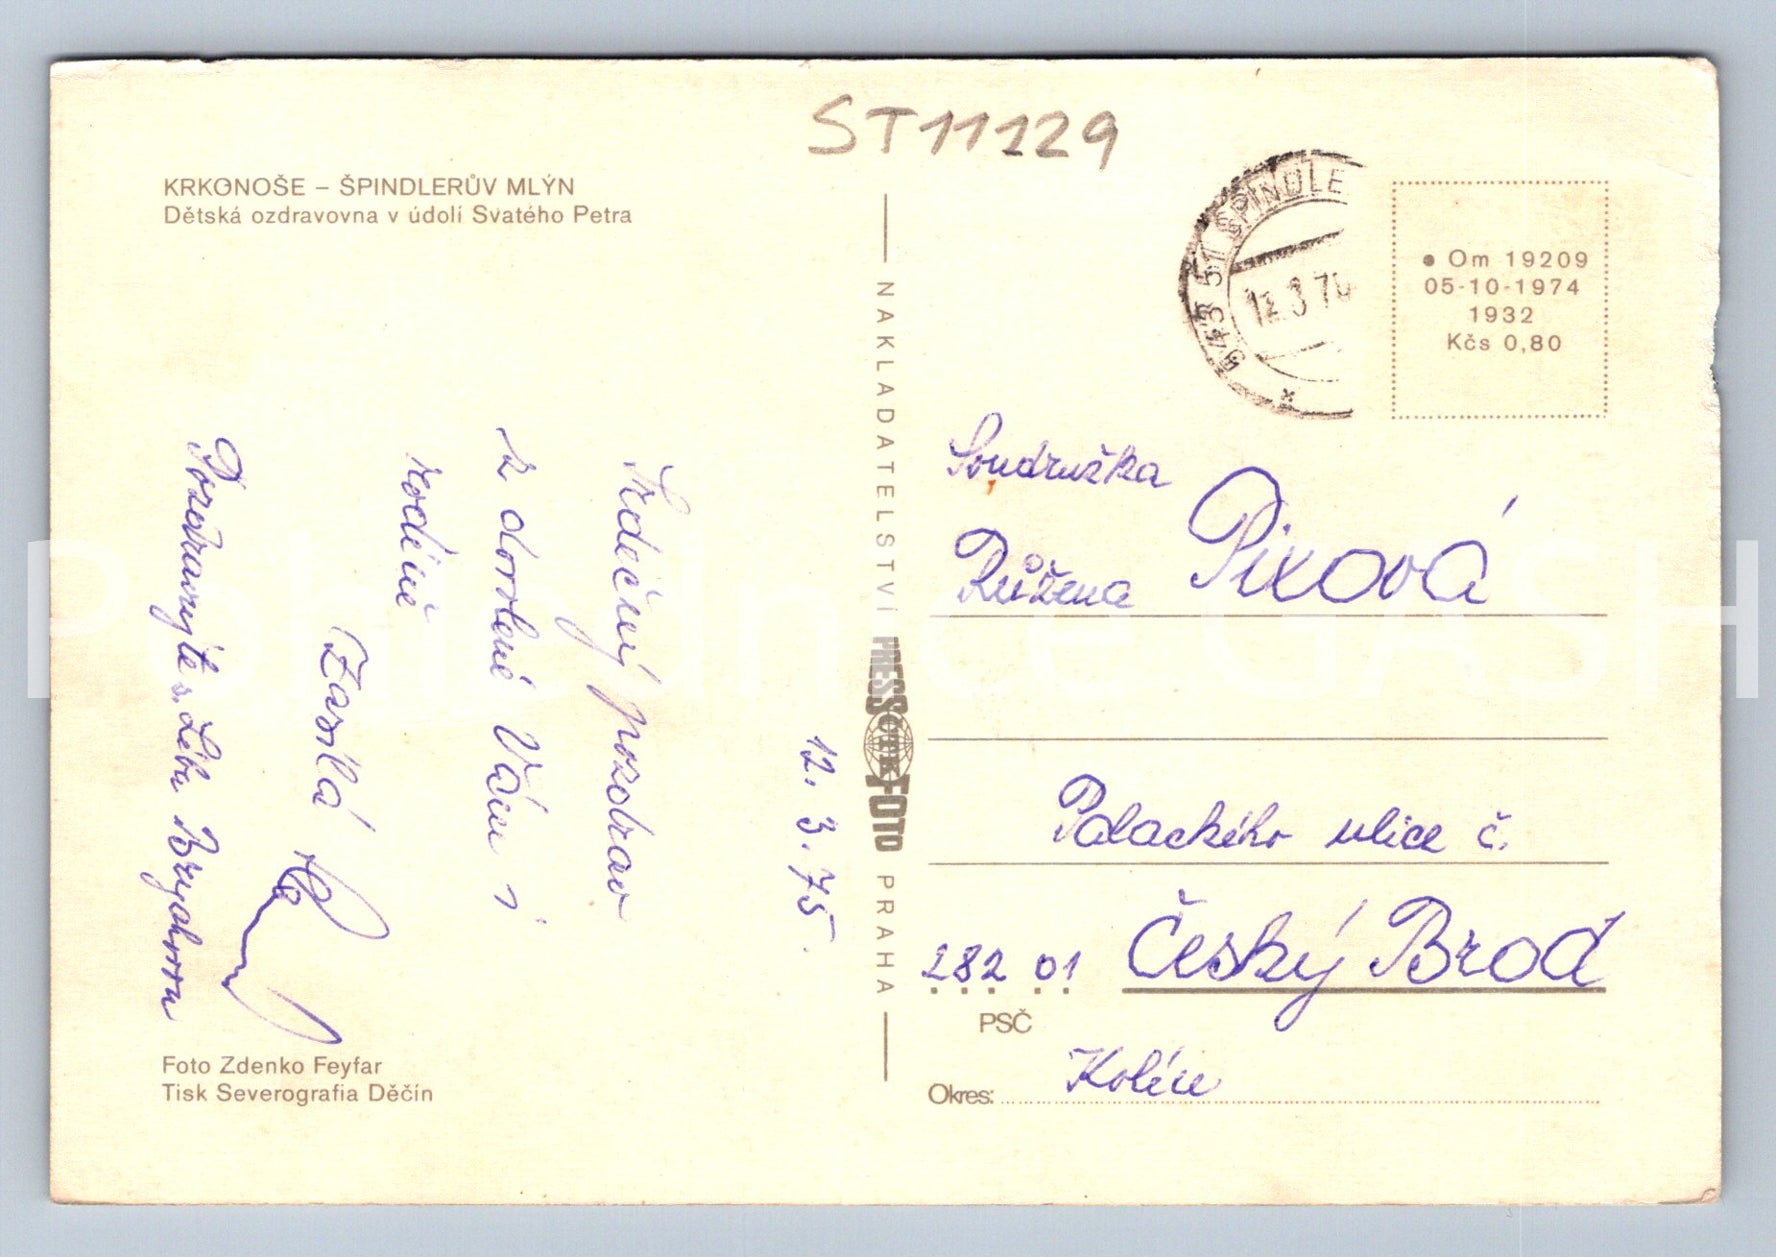 ST11129
KRKONOŠE – ŠPINDLERŮV MLÝN
Dětská ozdravovna v údolí Svatého Petra
543 51 ŠPINDLE
12.3.75
● Om 19209
05-10-1974
1932
Kčs 0,80
12. 3. 75.
Srdečný pozdrav
z dovolené Vám i
rodině
Zasílá
Pozdravujte s.
NAKLADATELSTVÍ PRESSFOTO PRAHA
Soudružka
Růžena Pixová
Palackého ulice č.
282 01 Český Brod
PSČ
Okres: Kolín
Foto Zdenko Feyfar
Tisk Severografia Děčín
Pohlednice CASH